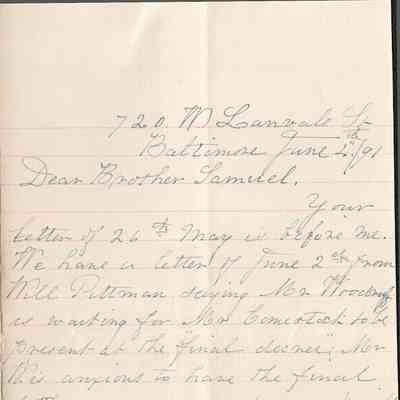 720. W Lanvale St
Baltimore June 4th/91
Dear Brother Samuel.
Your
letter of 26th May is before me.
We have a letter of June 2nd from
Will Pittman saying Mr Woodruff
is waiting for Mr Comstock to be
present at the final decree; Mr
this anxious to have the final